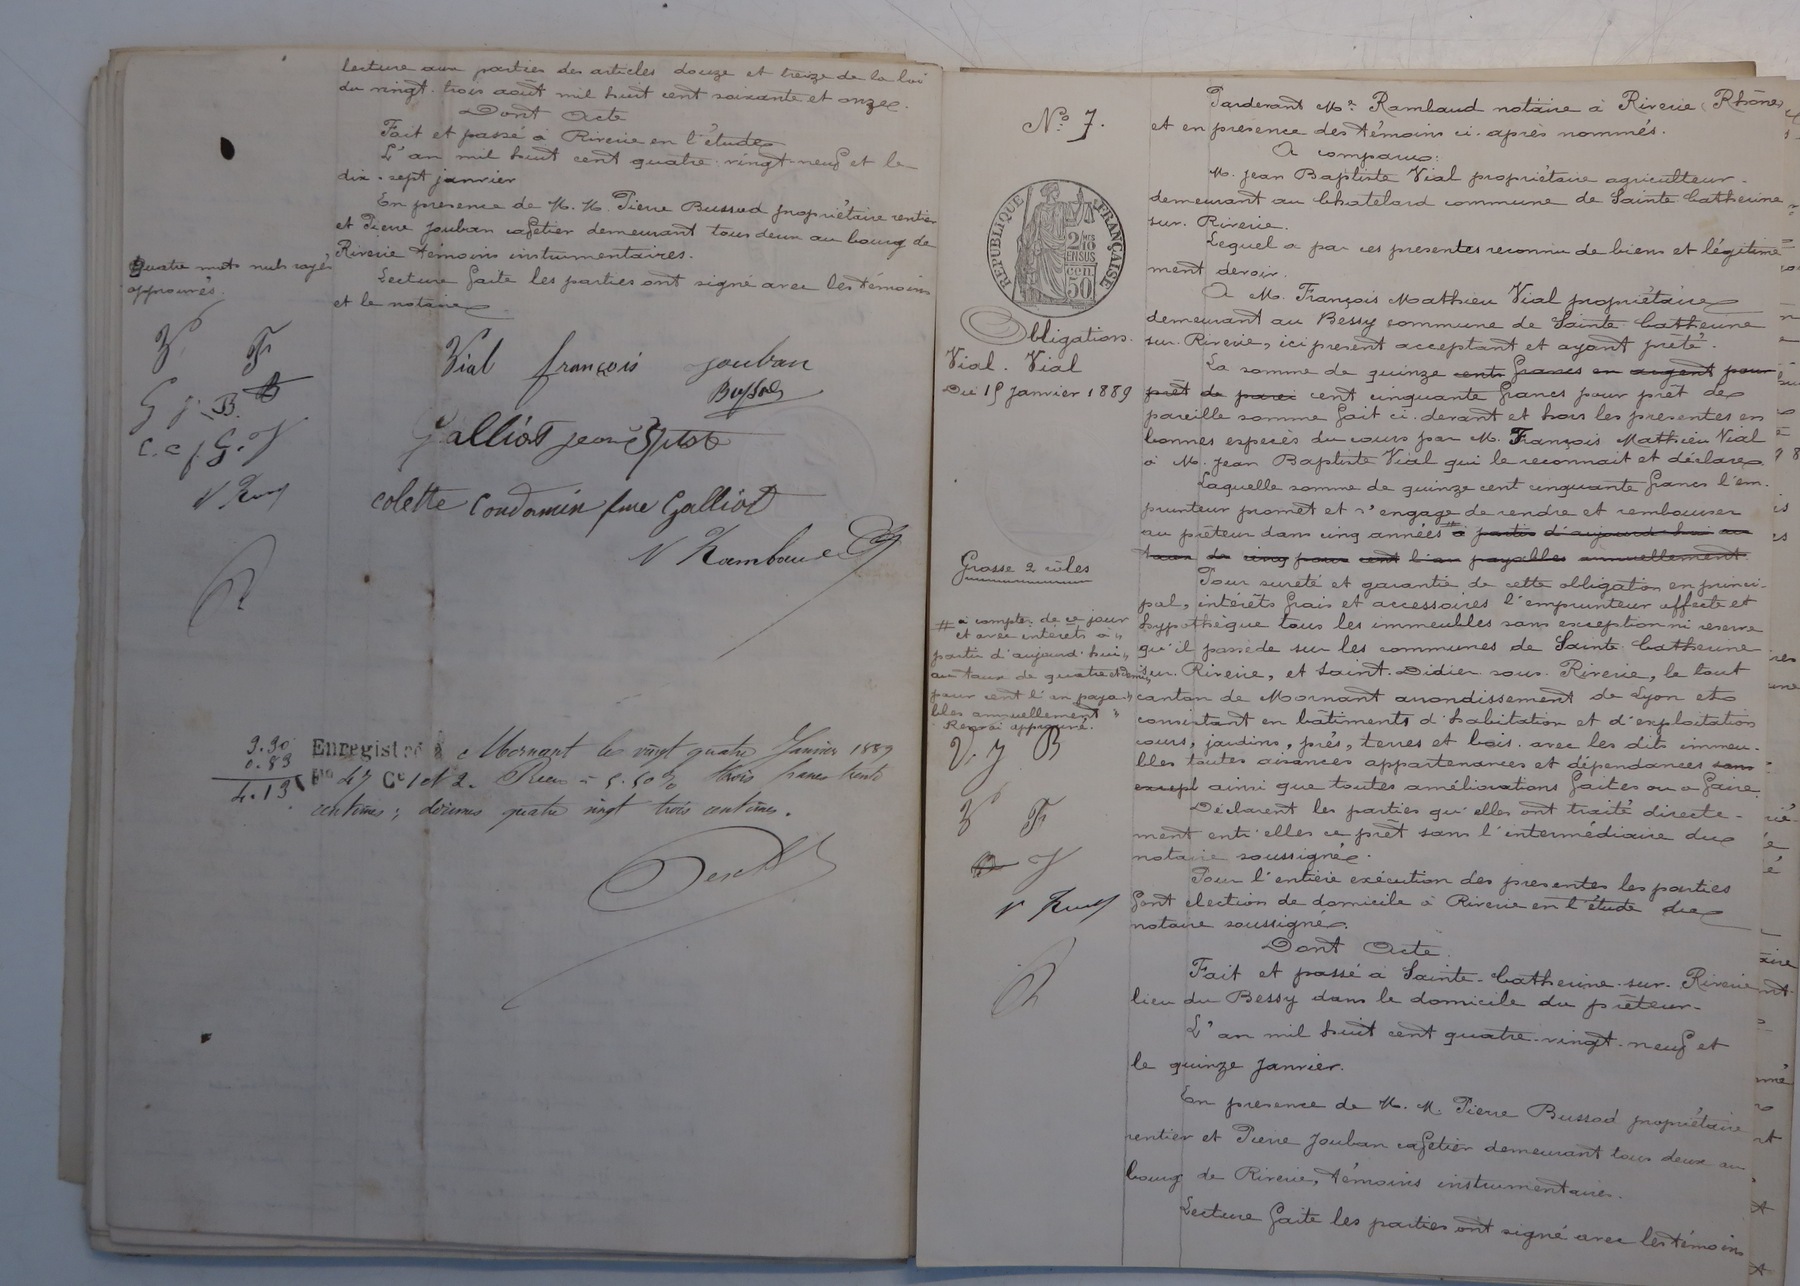 lecture aux parties des articles douze et treize de la loi
du vingt-trois août mil huit cent soixante et onze.
Dont Acte
Fait et passé à Riverie en l'étude
L'an mil huit cent quatre-vingt-neuf et le
dix-sept janvier
En presence de M. M. Pierre Bussod propriétaire rentier
et Pierre Jouban cafetier demeurant tous deux au bourg de
Riverie témoins instrumentaires.
Lecture faite les parties ont signé avec les témoins
et le notaire
Quatre mots nuls rayés
approuvés.
V F
G j. B. B
C. C f. G. J
N Ram
Vial françois Jouban
Bussod
Galliot jean Bptste
Colette Condamin fme Galliot
N Rambaud
3.30
0.83
4.13
Enregistré à Mornant le vingt quatre Janvier 1889
Fo 47 Ce 1 et 2. Reçu à 5.50% trois francs trente
centimes; décimes quatre vingt trois centimes.
No 7.
REPUBLIQUE FRANÇAISE
2/10mes
EN SUS
50 cen
Obligation.
Vial. Vial
Du 15 Janvier 1889
Grosse 2 rôles
# à compter de ce jour
et avec intérêts à
partir d'aujourd'hui
au taux de quatre et demi
pour cent l'an paya-
bles annuellement
Renvoi approuvé.
V. J B
V F
J
N Ram
Pardevant Me Rambaud notaire à Riverie (Rhône)
et en presence des témoins ci-après nommés.
A comparu:
M. Jean Baptiste Vial propriétaire agriculteur
demeurant au Chatelard commune de Sainte Catherine
sur-Riverie.
Lequel a par ces presentes reconnu de biens et légitime
ment devoir.
A M. François Mathieu Vial propriétaire
demeurant au Bessy commune de Sainte Catherine
sur-Riverie, ici present acceptant et ayant prêté.
La somme de quinze cents francs en argent pour
prêt de parei cent cinquante francs pour prêt de
pareille somme fait ci-devant et hors les presentes en
bonnes espèces du cours par M. François Mathieu Vial
à M. Jean Baptiste Vial qui le reconnait et déclare
Laquelle somme de quinze cent cinquante francs l'em-
prunteur promet et s'engage de rendre et rembourser
au prêteur dans cinq années # à partir d'aujourd'hui au
taux de cinq pour cent l'an payables annuellement.
Pour sureté et garantie de cette obligation en princi-
pal, intérêts frais et accessoires l'emprunteur affecte et
hypothèque tous les immeubles sans exception ni reserve
qu'il possède sur les communes de Sainte Catherine
sur-Riverie, et Saint-Didier-sous-Riverie, le tout
canton de Mornant arrondissement de Lyon et
consistant en bâtiments d'habitation et d'exploitation
cours, jardins, prés, terres et bois. avec les dits immeu-
bles toutes aisances appartenances et dépendances sans
except ainsi que toutes améliorations faites ou à faire.
Déclarent les parties qu'elles ont traité directe-
ment entr'elles ce prêt sans l'intermédiaire du
notaire soussigné.
Pour l'entière exécution des presentes les parties
font election de domicile à Riverie en l'étude du
notaire soussigné.
Dont Acte
Fait et passé à Sainte-Catherine-sur-Riverie
lieu du Bessy dans le domicile du prêteur-
L'an mil huit cent quatre-vingt-neuf et
le quinze Janvier.
En presence de M. M. Pierre Bussod propriétaire
rentier et Pierre Jouban cafetier demeurant tous deux au
bourg de Riverie, témoins instrumentaires.
Lecture faite les parties ont signé avec les témoins